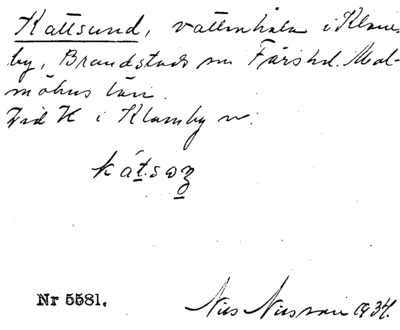 Kattsund, vattenhåla i Klam-
by, Brandstads sn Färs hd. Mal-
möhus län.
Vid K i Klamby n.
kát.soŋ
Nr 5581. Nils Nilsson 1934.